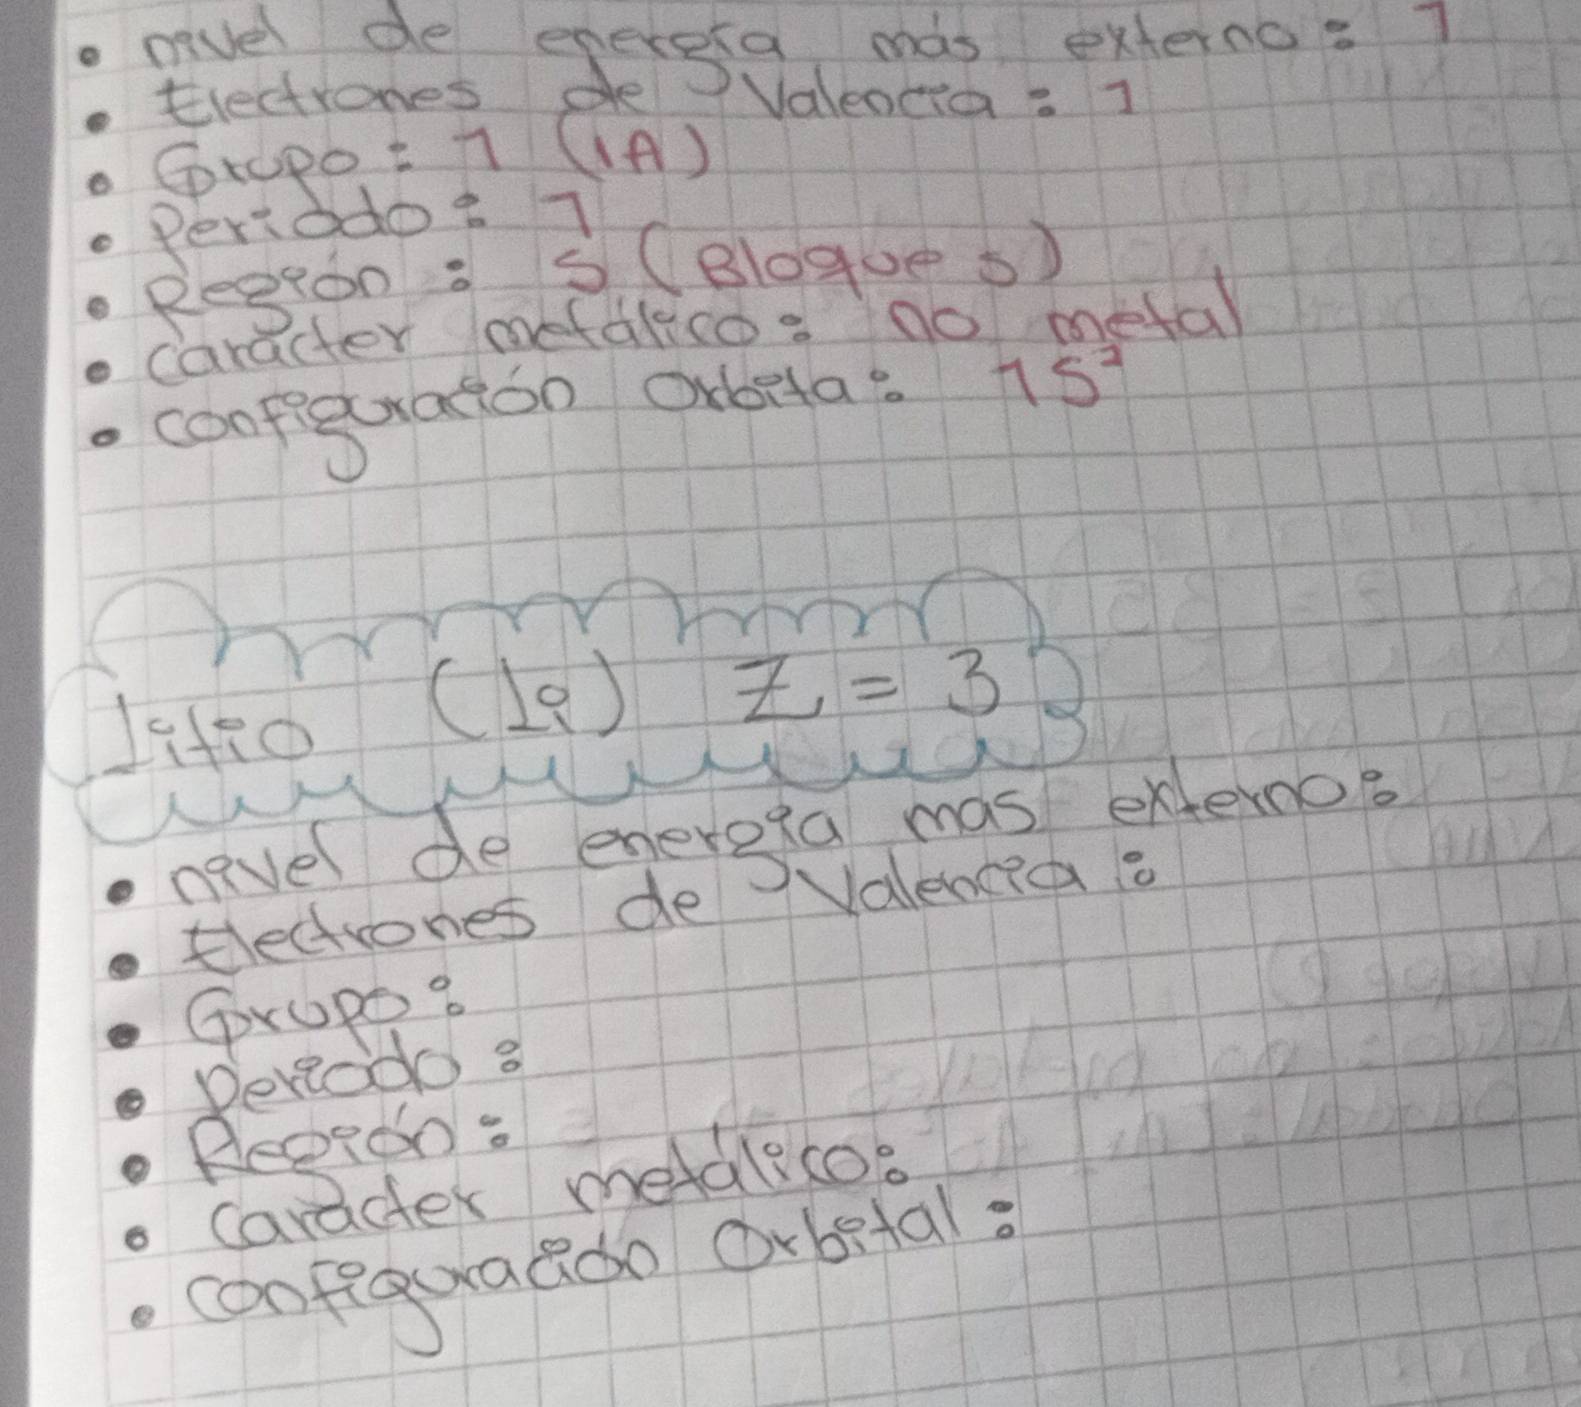 • nivel de energía más externo: 1
• Electrones de Valencia: 1
• Grupo: 1 (1A)
• Periodo: 1
• Región: S (Bloque s)
• carácter metálico: no metal
• configuración Orbita: 1S¹
litio (li) Z = 3
• nivel de energia mas externo:
• Electrones de Valencia:
• Grupo:
• periodo:
• Región:
• carácter metálico:
• configuración Orbital: